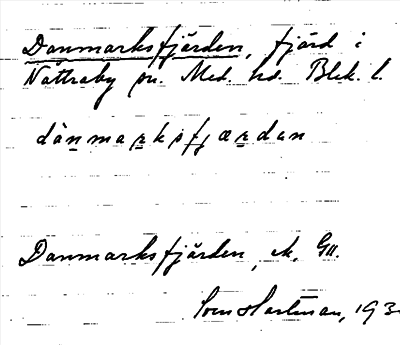 Danmarksfjärden, fjärd i
Nättraby sn. Med. hd. Blek. l.
dànmarksfjærdan
Danmarksfjärden, ek. Gk.
Sven Hartman, 193